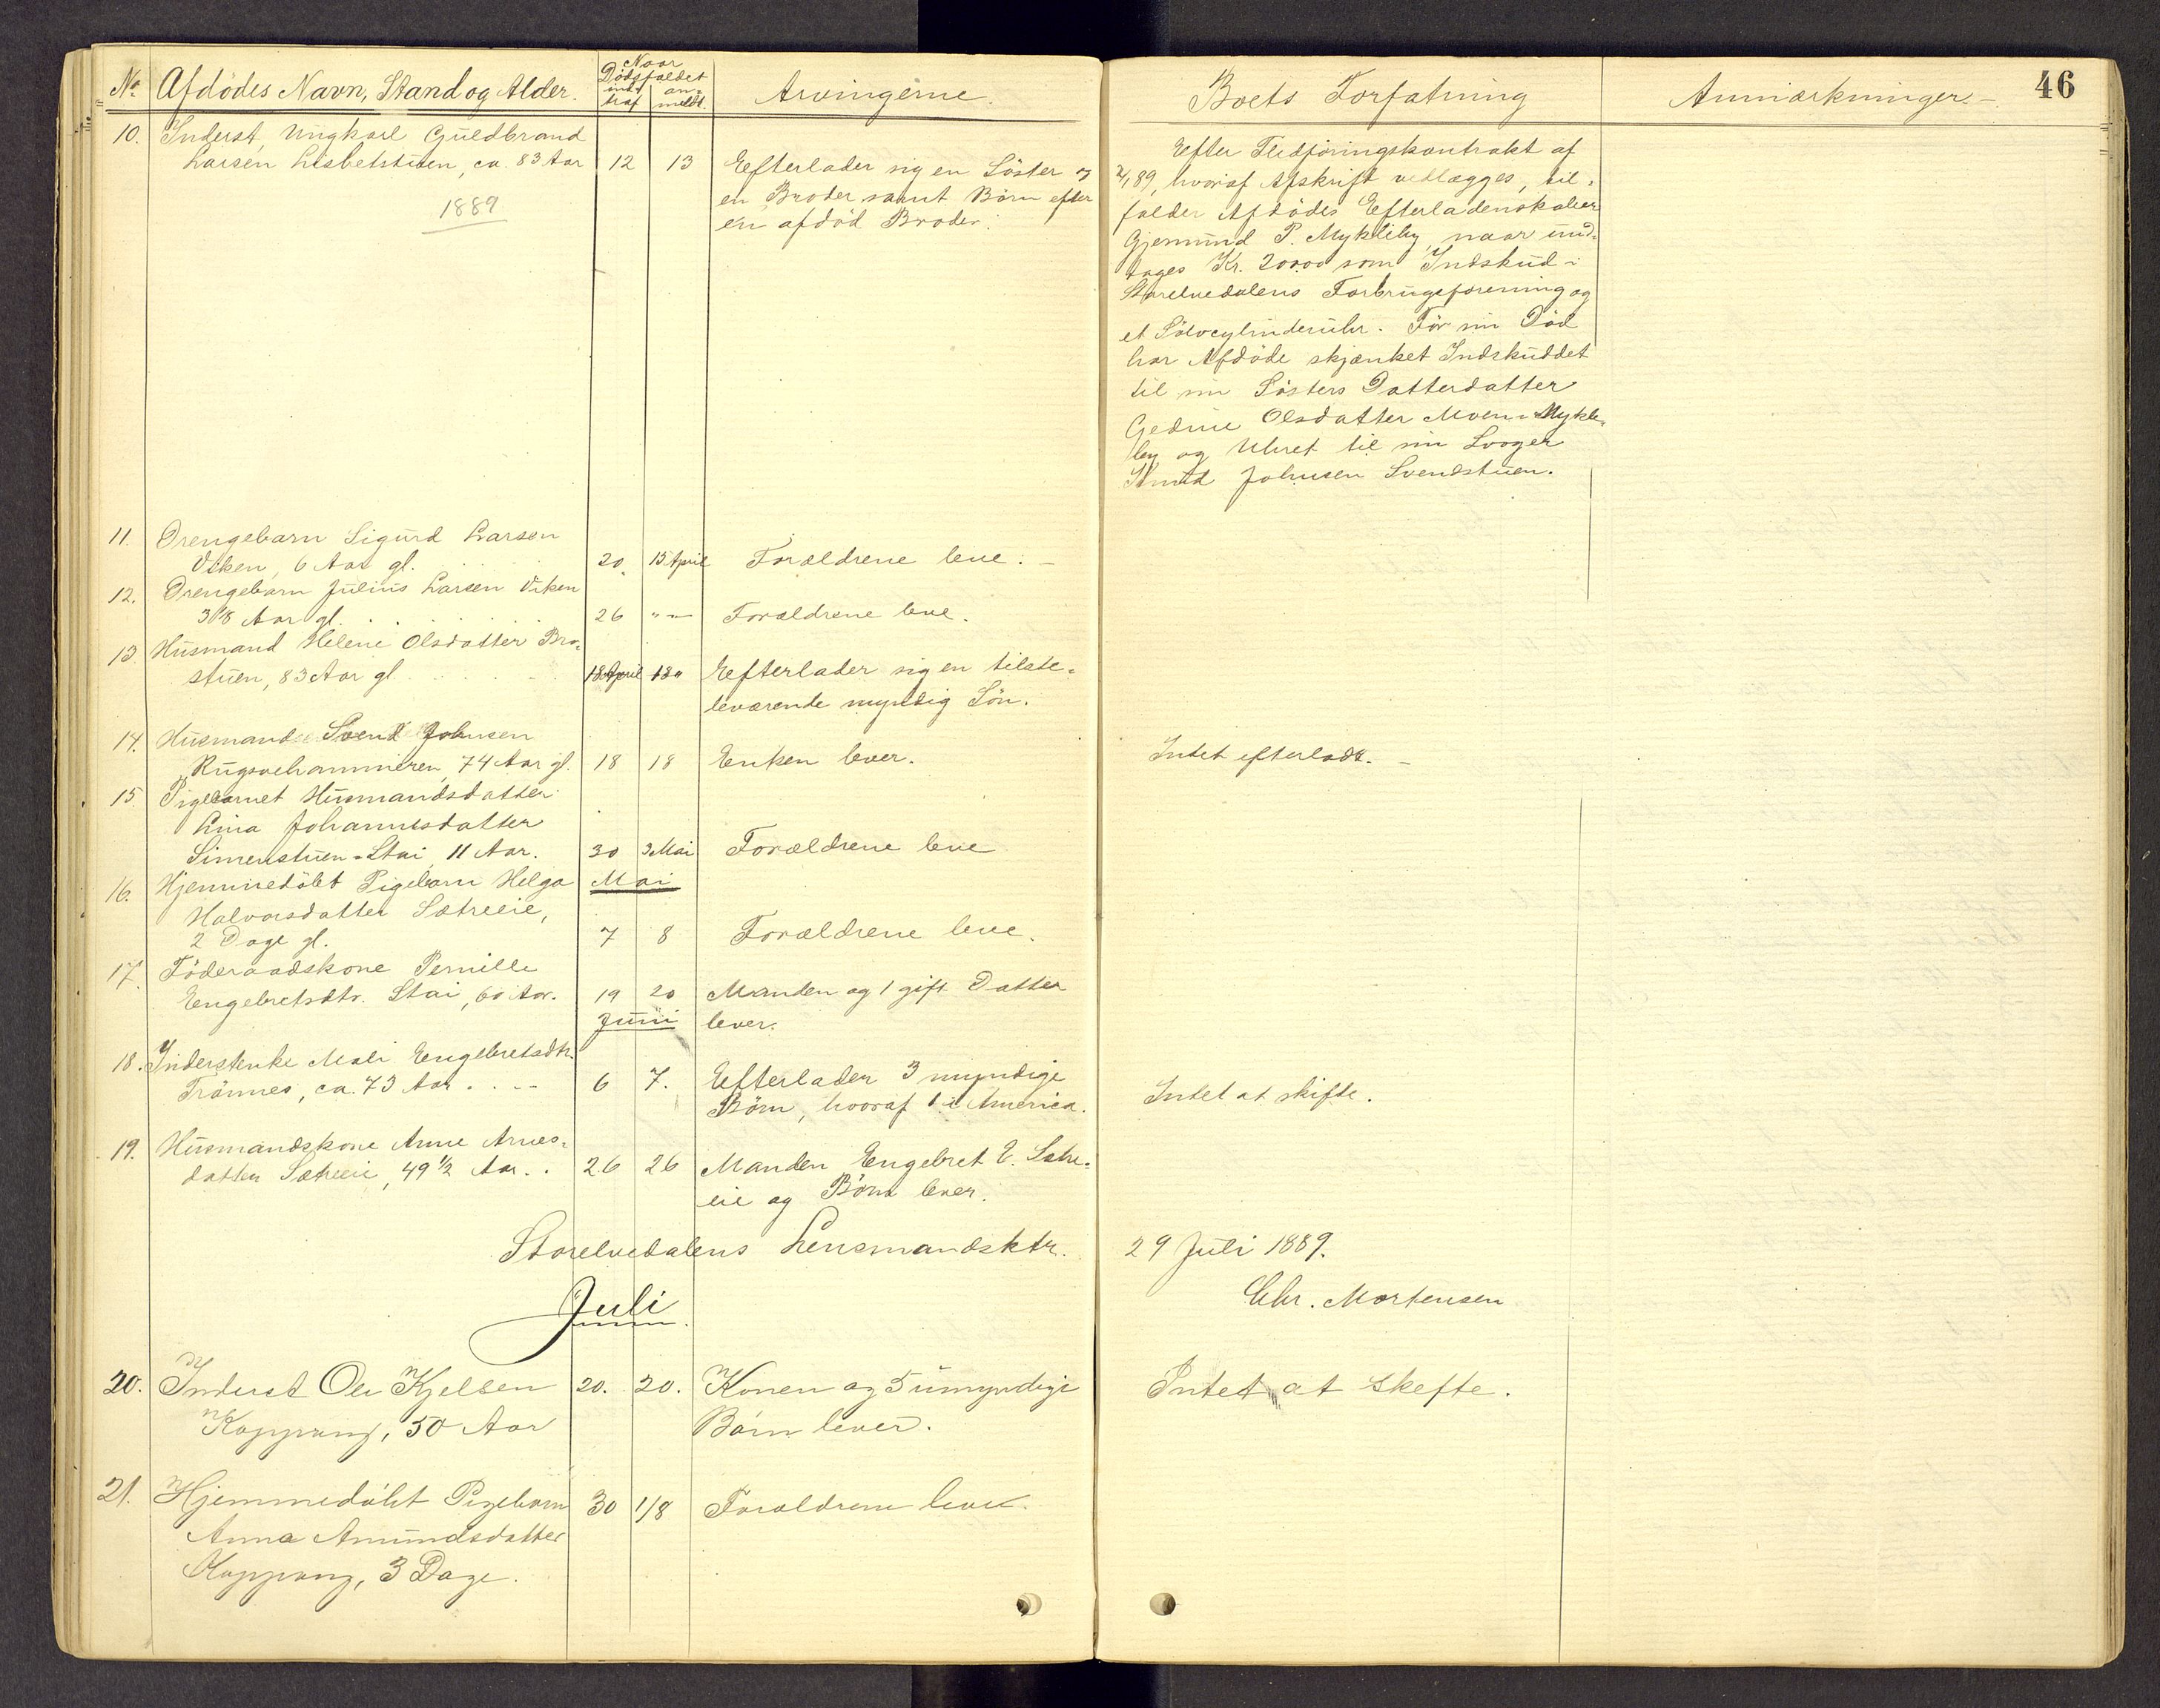 No. Afdödes Navn, Stand og Alder. Naar Dödsfaldet indtraf anmeldt. Arvingerne. Boets Forfatning Anmærkninger. 46
10. Inderst, Ungkarl Guldbrand
Larsen Lisbetstuen, ca. 83 Aar 12 13 Efterlader sig en Söster og
en Broder samt Börn efter
en afdöd Broder.
1889
Efter Flidföringskontrakt af
89, hvoraf Afskrift vedlægges, til-
falder Afdödes Efterladenskaber
Gjermund P. Mykleby, naar und-
tages Kr. 200.00 som Indskud i
Storelvedalens Forbrugsforening og
et Sölvcylinderuhr. För sin Död
har Afdöde skjænket Indskuddet
til sin Sösters Datterdatter
Gedine Olsdatter Moen Mykle-
by og Uhret til sin Svoger
Knud Johnsen Svendstuen.
11. Drengebarn Sigurd Larsen
Viken, 6 Aar gl. 20 15 April Forældrene leve.
12. Drengebarn Julius Larsen Viken
3 1/8 Aar gl. 26 " — Forældrene leve.
13. Husmand Helene Olsdatter Bro-
stuen, 83 Aar gl. 18 April 18 " Efterlader sig en tilste-
leværende myndig Sön.
14. Husmand Svend Johnsen
Rugsvehammeren, 74 Aar gl. 18 18 Enken lever. Intet efterladt.
15. Pigebarnet Husmandsdatter
Lina Johannesdatter
Simenstuen-Stai, 11 Aar. 30 3 Mai Forældrene leve
16. Hjemmedöbt Pigebarn Helga Mai
Halvorsdatter Sætreeie,
2 Dage gl. 7 8 Forældrene leve.
17. Föderaadskone Pernille
Engebretsdtr. Stai, 60 Aar. 19 20 Manden og 1 gift Datter
Juni lever.
18. Inderstenke Mali Engebretsdtr.
Trönnes, ca. 73 Aar 6 7. Efterlader 3 myndige
Börn, hvoraf 1 i America. Intet at skifte.
19. Husmandskone Anne Arnes-
datter Sætreeie, 49 1/2 Aar. 26 26 Manden Engebret E. Sætre-
eie og Börn lever.
Storelvedalens Lensmandsktr. 29 Juli 1889.
Chr. Mortensen
Juli
20. Inderst Ole Kjelsen 20. 20. Konen og 5 umyndige Intet at skefte.
Koppang, 50 Aar Börn lever.
21. Hjemmedöbt Pigebarn 30 1/8 Forældrene leve.
Anna Amundsdatter
Koppang, 3 Dage.